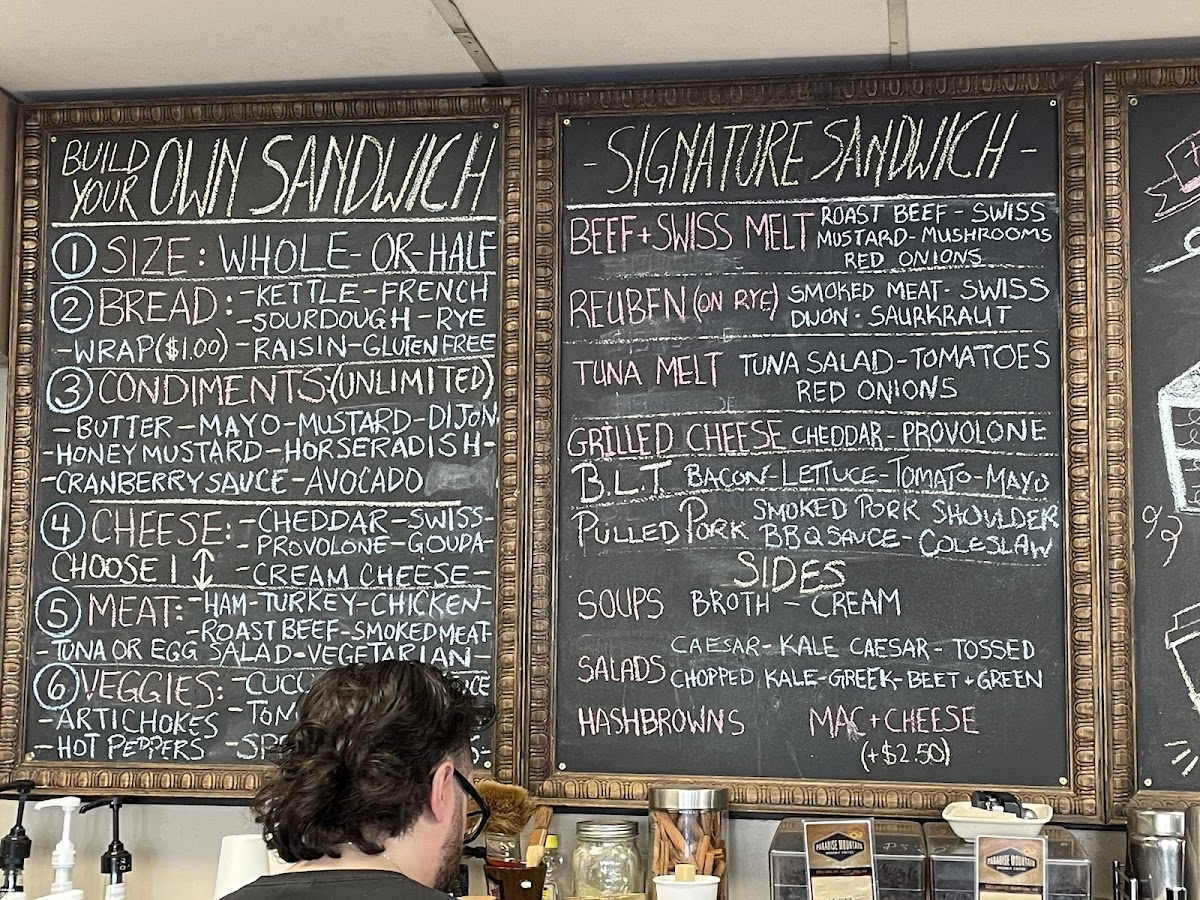 BUILD YOUR OWN SANDWICH
1 SIZE: WHOLE-OR-HALF
2 BREAD: -KETTLE-FRENCH
-SOURDOUGH-RYE
-WRAP($1.00) -RAISIN-GLUTEN FREE
3 CONDIMENTS:(UNLIMITED)
-BUTTER-MAYO-MUSTARD-DIJON
-HONEY MUSTARD-HORSERADISH-
-CRANBERRY SAUCE-AVOCADO
4 CHEESE: -CHEDDAR-SWISS-
-PROVOLONE-GOUDA-
CHOOSE 1 ↕ -CREAM CHEESE-
5 MEAT: -HAM-TURKEY-CHICKEN-
-ROAST BEEF-SMOKED MEAT-
-TUNA OR EGG SALAD-VEGETARIAN-
6 VEGGIES:
-ARTICHOKES
-HOT PEPPERS
-SIGNATURE SANDWICH-
BEEF+SWISS MELT ROAST BEEF-SWISS
MUSTARD-MUSHROOMS
RED ONIONS
REUBEN (ON RYE) SMOKED MEAT-SWISS
DIJON-SAURKRAUT
TUNA MELT TUNA SALAD-TOMATOES
RED ONIONS
GRILLED CHEESE CHEDDAR-PROVOLONE
B.L.T BACON-LETTUCE-TOMATO-MAYO
PULLED PORK SMOKED PORK SHOULDER
BBQ SAUCE-COLESLAW
SIDES
SOUPS BROTH-CREAM
SALADS CAESAR-KALE CAESAR-TOSSED
CHOPPED KALE-GREEK-BEET+GREEN
HASHBROWNS MAC+CHEESE
(+$2.50)
PARADISE MOUNTAIN
PARADISE MOUNTAIN